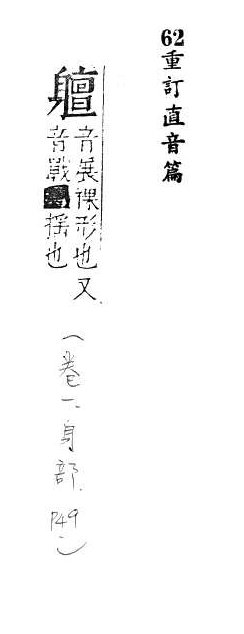 62重訂直音篇
音展裸形也又
音戰搖也
（卷一、身部、P49）